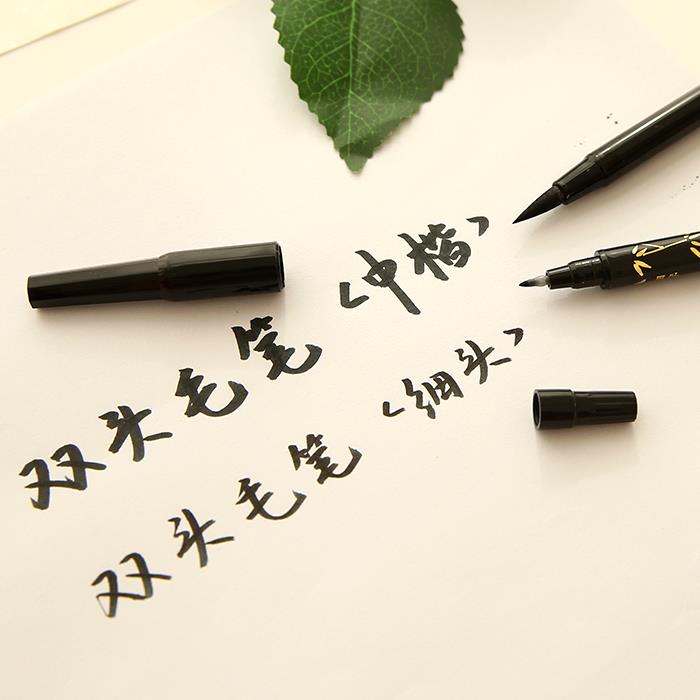 双头毛笔<中楷>
双头毛笔<细头>